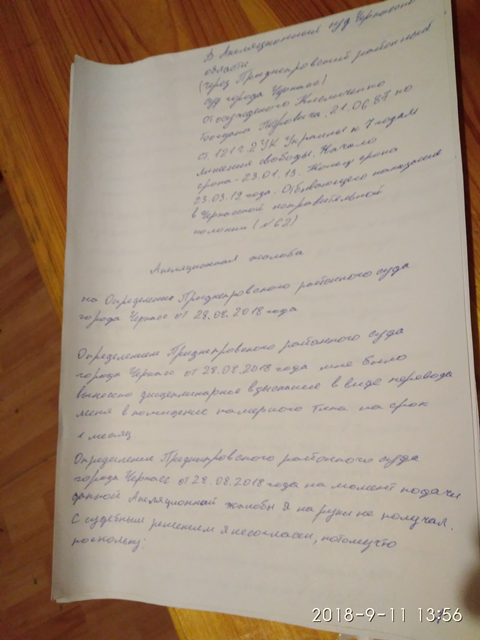 В Апеляционный суд Черкасской
области
(через Приднепровский районный
суд города Черкасс)
От осужденного Клименченко
Богдана Петровича, 21.06.87 по
ст. 121 ч. 2 УК Украины к 7 годам
лишения свободы. Начало
срока - 23.01.13. Конец срока
23.03.19 года. Отбывающего наказание
в Черкасской исправительной
колонии (№62)
Апеляционная жалоба
на Определение Приднепровского районного суда
города Черкасс от 28.08.2018 года
Определением Приднепровского районного суда
города Черкасс от 28.08.2018 года мне было
вынесено дисциплинарное взыскание в виде перевода
меня в помещение камерного типа на срок
1 месяц
Определения Приднепровского районного суда
города Черкасс от 28.08.2018 года на момент подачи
данной Апеляционной жалобы я на руки не получал.
С судебным решением я несогласен, потому что
поскольку:
2018-9-11 13:56